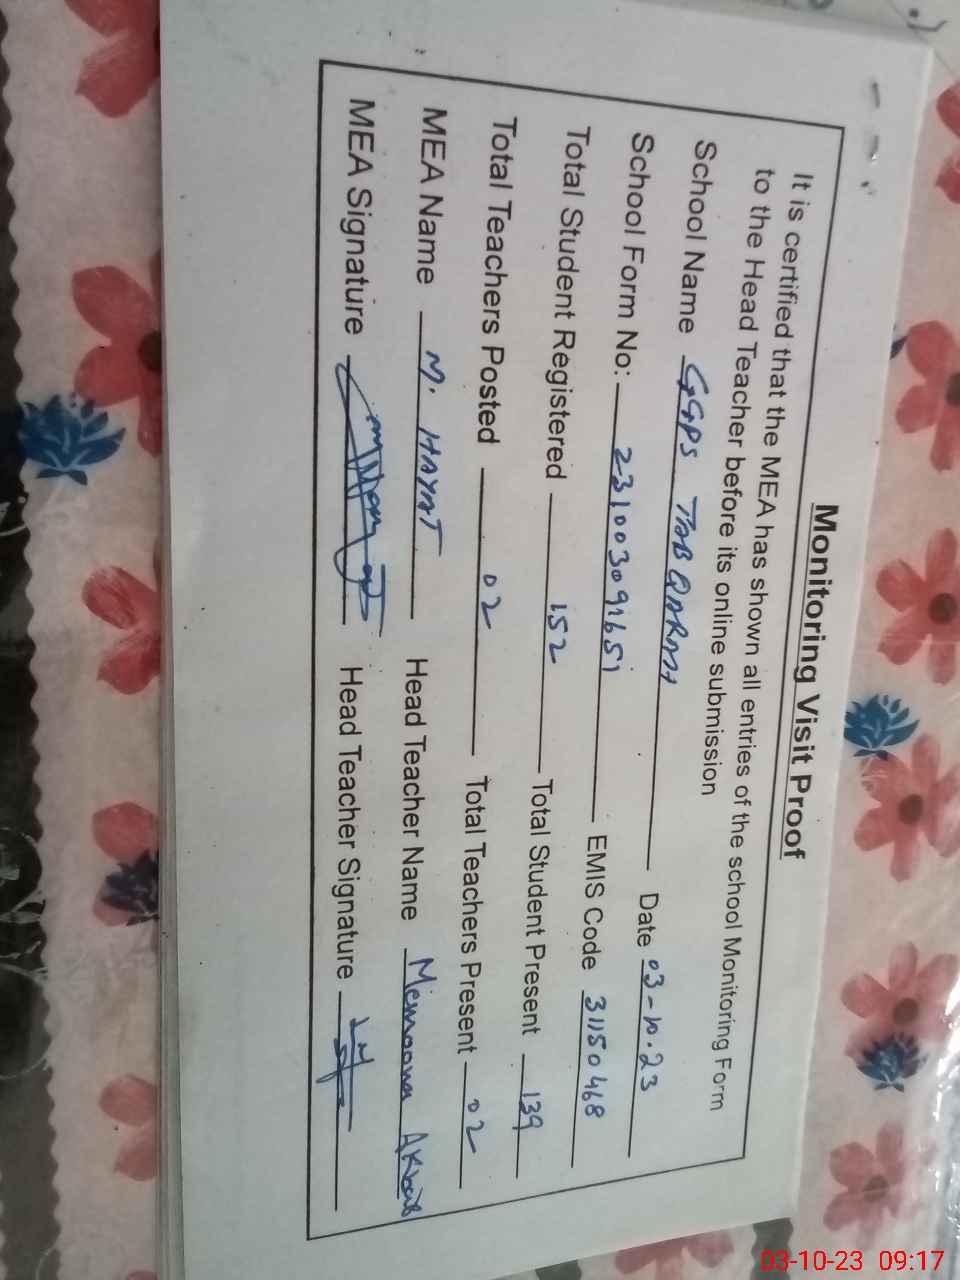 Monitoring Visit Proof
It is certified that the MEA has shown all entries of the school Monitoring Form
to the Head Teacher before its online submission
School Name GGPS TAB QARAH Date 03-10.23
School Form No: 231003091651 EMIS Code 31150468
Total Student Registered 152 Total Student Present 139
Total Teachers Posted 02 Total Teachers Present 02
MEA Name M. HAYAT Head Teacher Name Memoona
MEA Signature Head Teacher Signature
03-10-23 09:17